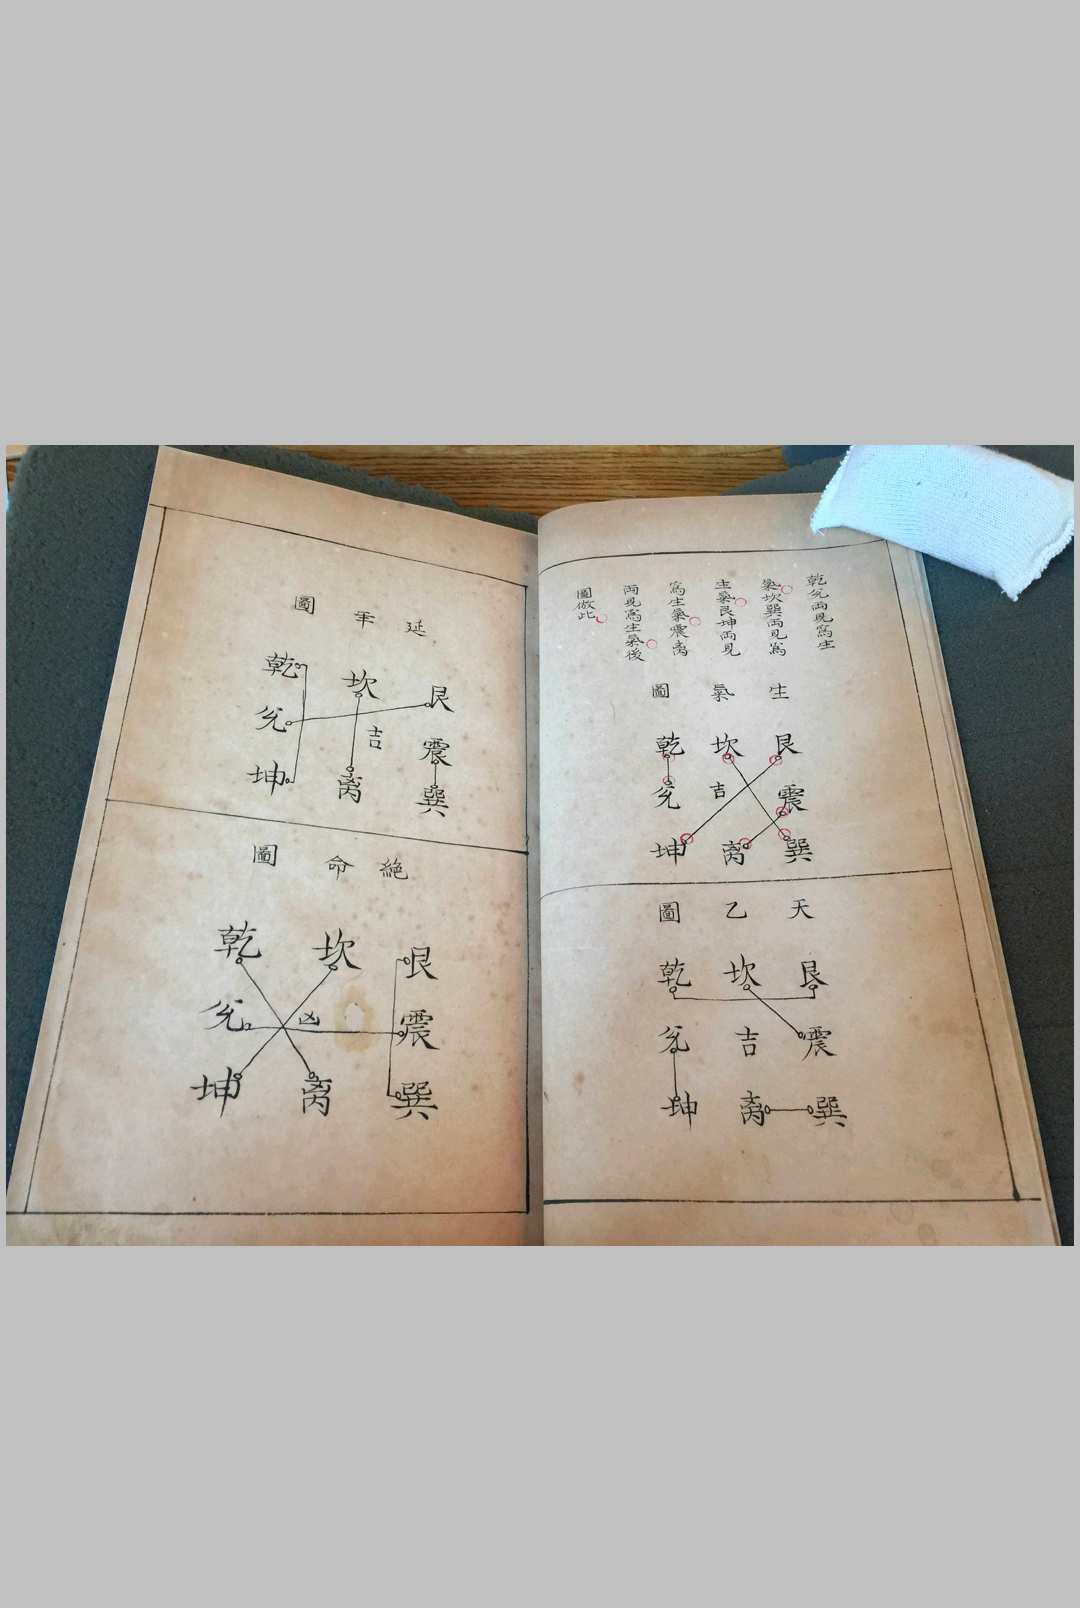 乾兊両見爲生
氣坎巽両見爲
生氣艮坤両見
爲生氣震离
両見爲生氣後
圖倣此
生氣圖
乾 坎 艮
兊 吉 震
坤 离 巽
天乙圖
乾 坎 艮
兊 吉 震
坤 离 巽
延年圖
乾 坎 艮
兊 吉 震
坤 离 巽
絕命圖
乾 坎 艮
兊 凶 震
坤 离 巽